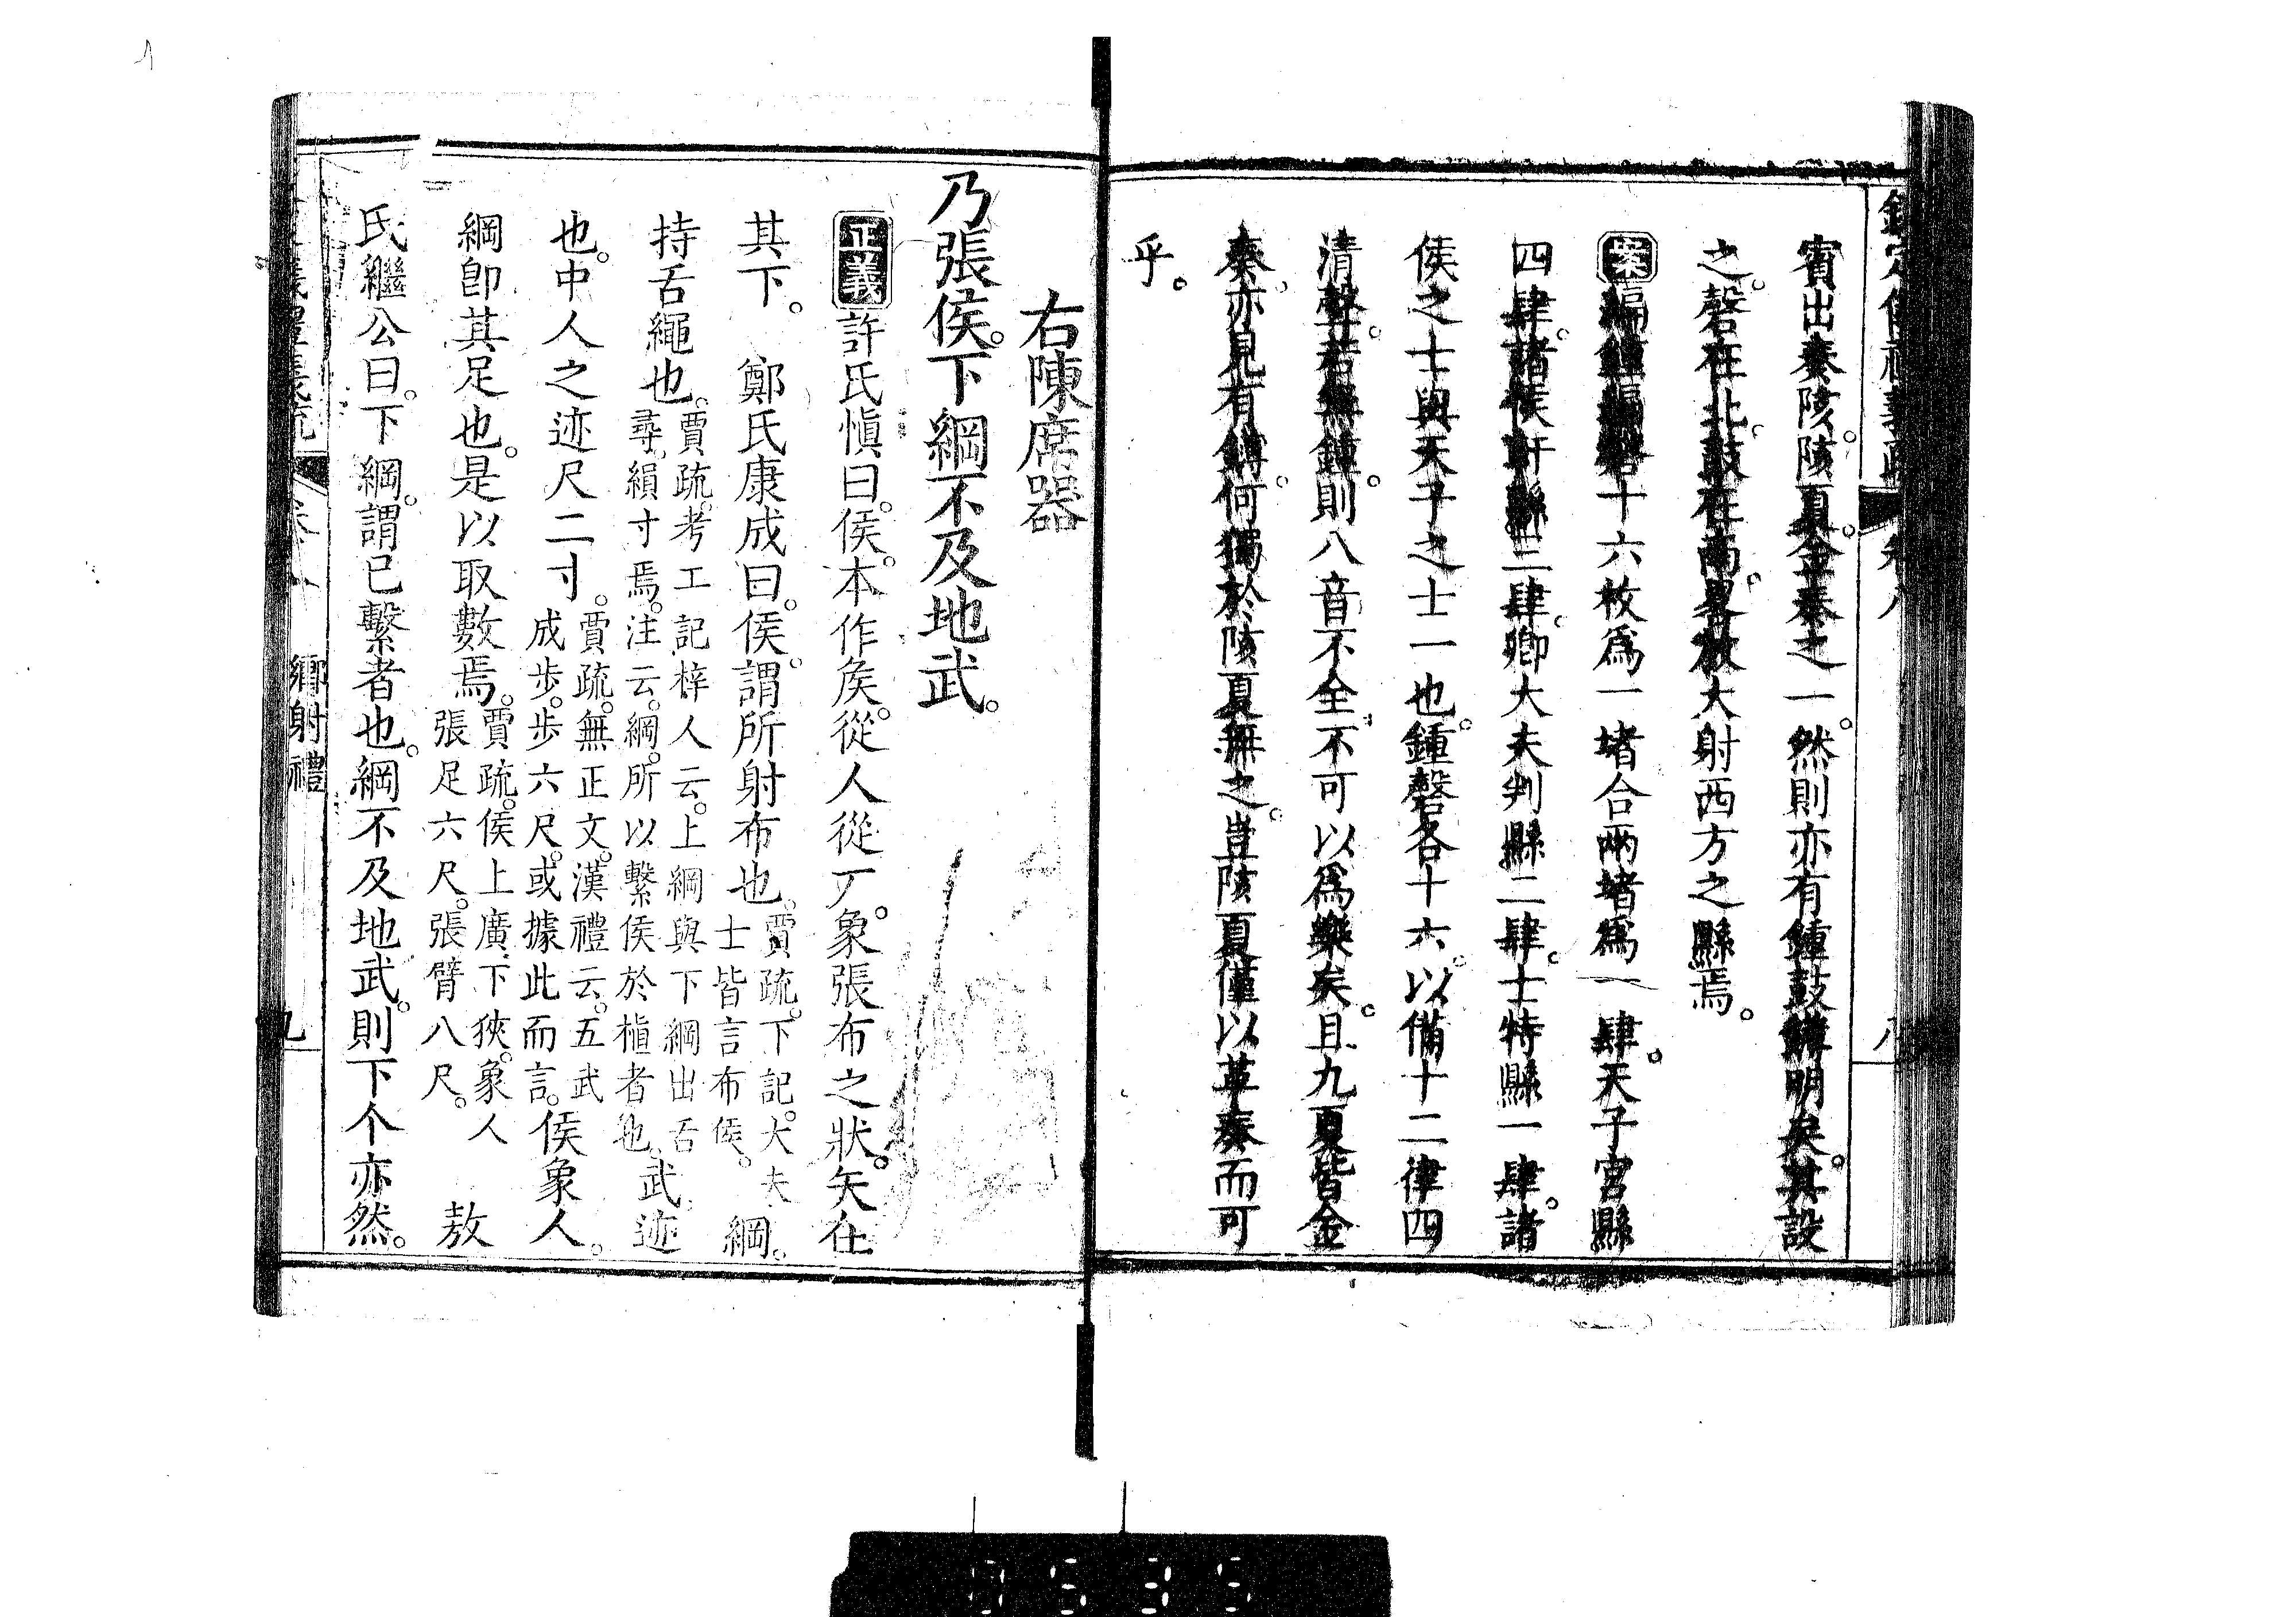 賓出奏陔。陔夏。金奏之一。然則亦有鍾鼓鎛明矣。其設
之。磬在北。鼓在南。畧放大射西方之縣焉。
案編鍾編磬十六枚爲一堵合兩堵爲一肆。天子宮縣
四肆。諸侯軒縣三肆。卿大夫判縣二肆。士特縣一肆。諸
侯之士與天子之士一也。鍾磬各十六。以備十二律四
清聲。若無鍾。則八音不全。不可以爲樂矣。且九夏皆金
奏。亦見有鎛。何獨於陔夏無之。豈陔夏僅以革奏而可
乎。
右陳席器
乃張侯。下綱不及地武。
正義許氏愼曰。侯。本作矦。從人從厂。象張布之狀。矢在
其下。 鄭氏康成曰。侯。謂所射布也。賈疏。下記。大夫士皆言布侯。綱。
持舌繩也。賈疏。考工記梓人云。上綱與下綱出舌尋。縜寸焉。注云。綱。所以繫侯於植者也。武。迹
也。中人之迹尺二寸。賈疏。無正文。漢禮云。五武成步。步六尺。或據此而言。侯象人。
綱卽其足也。是以取數焉。賈疏。侯上廣。下狹。象人張足六尺。張臂八尺。 敖
氏繼公曰。下綱。謂已繫者也。綱不及地武。則下个亦然。
鄉射禮
九